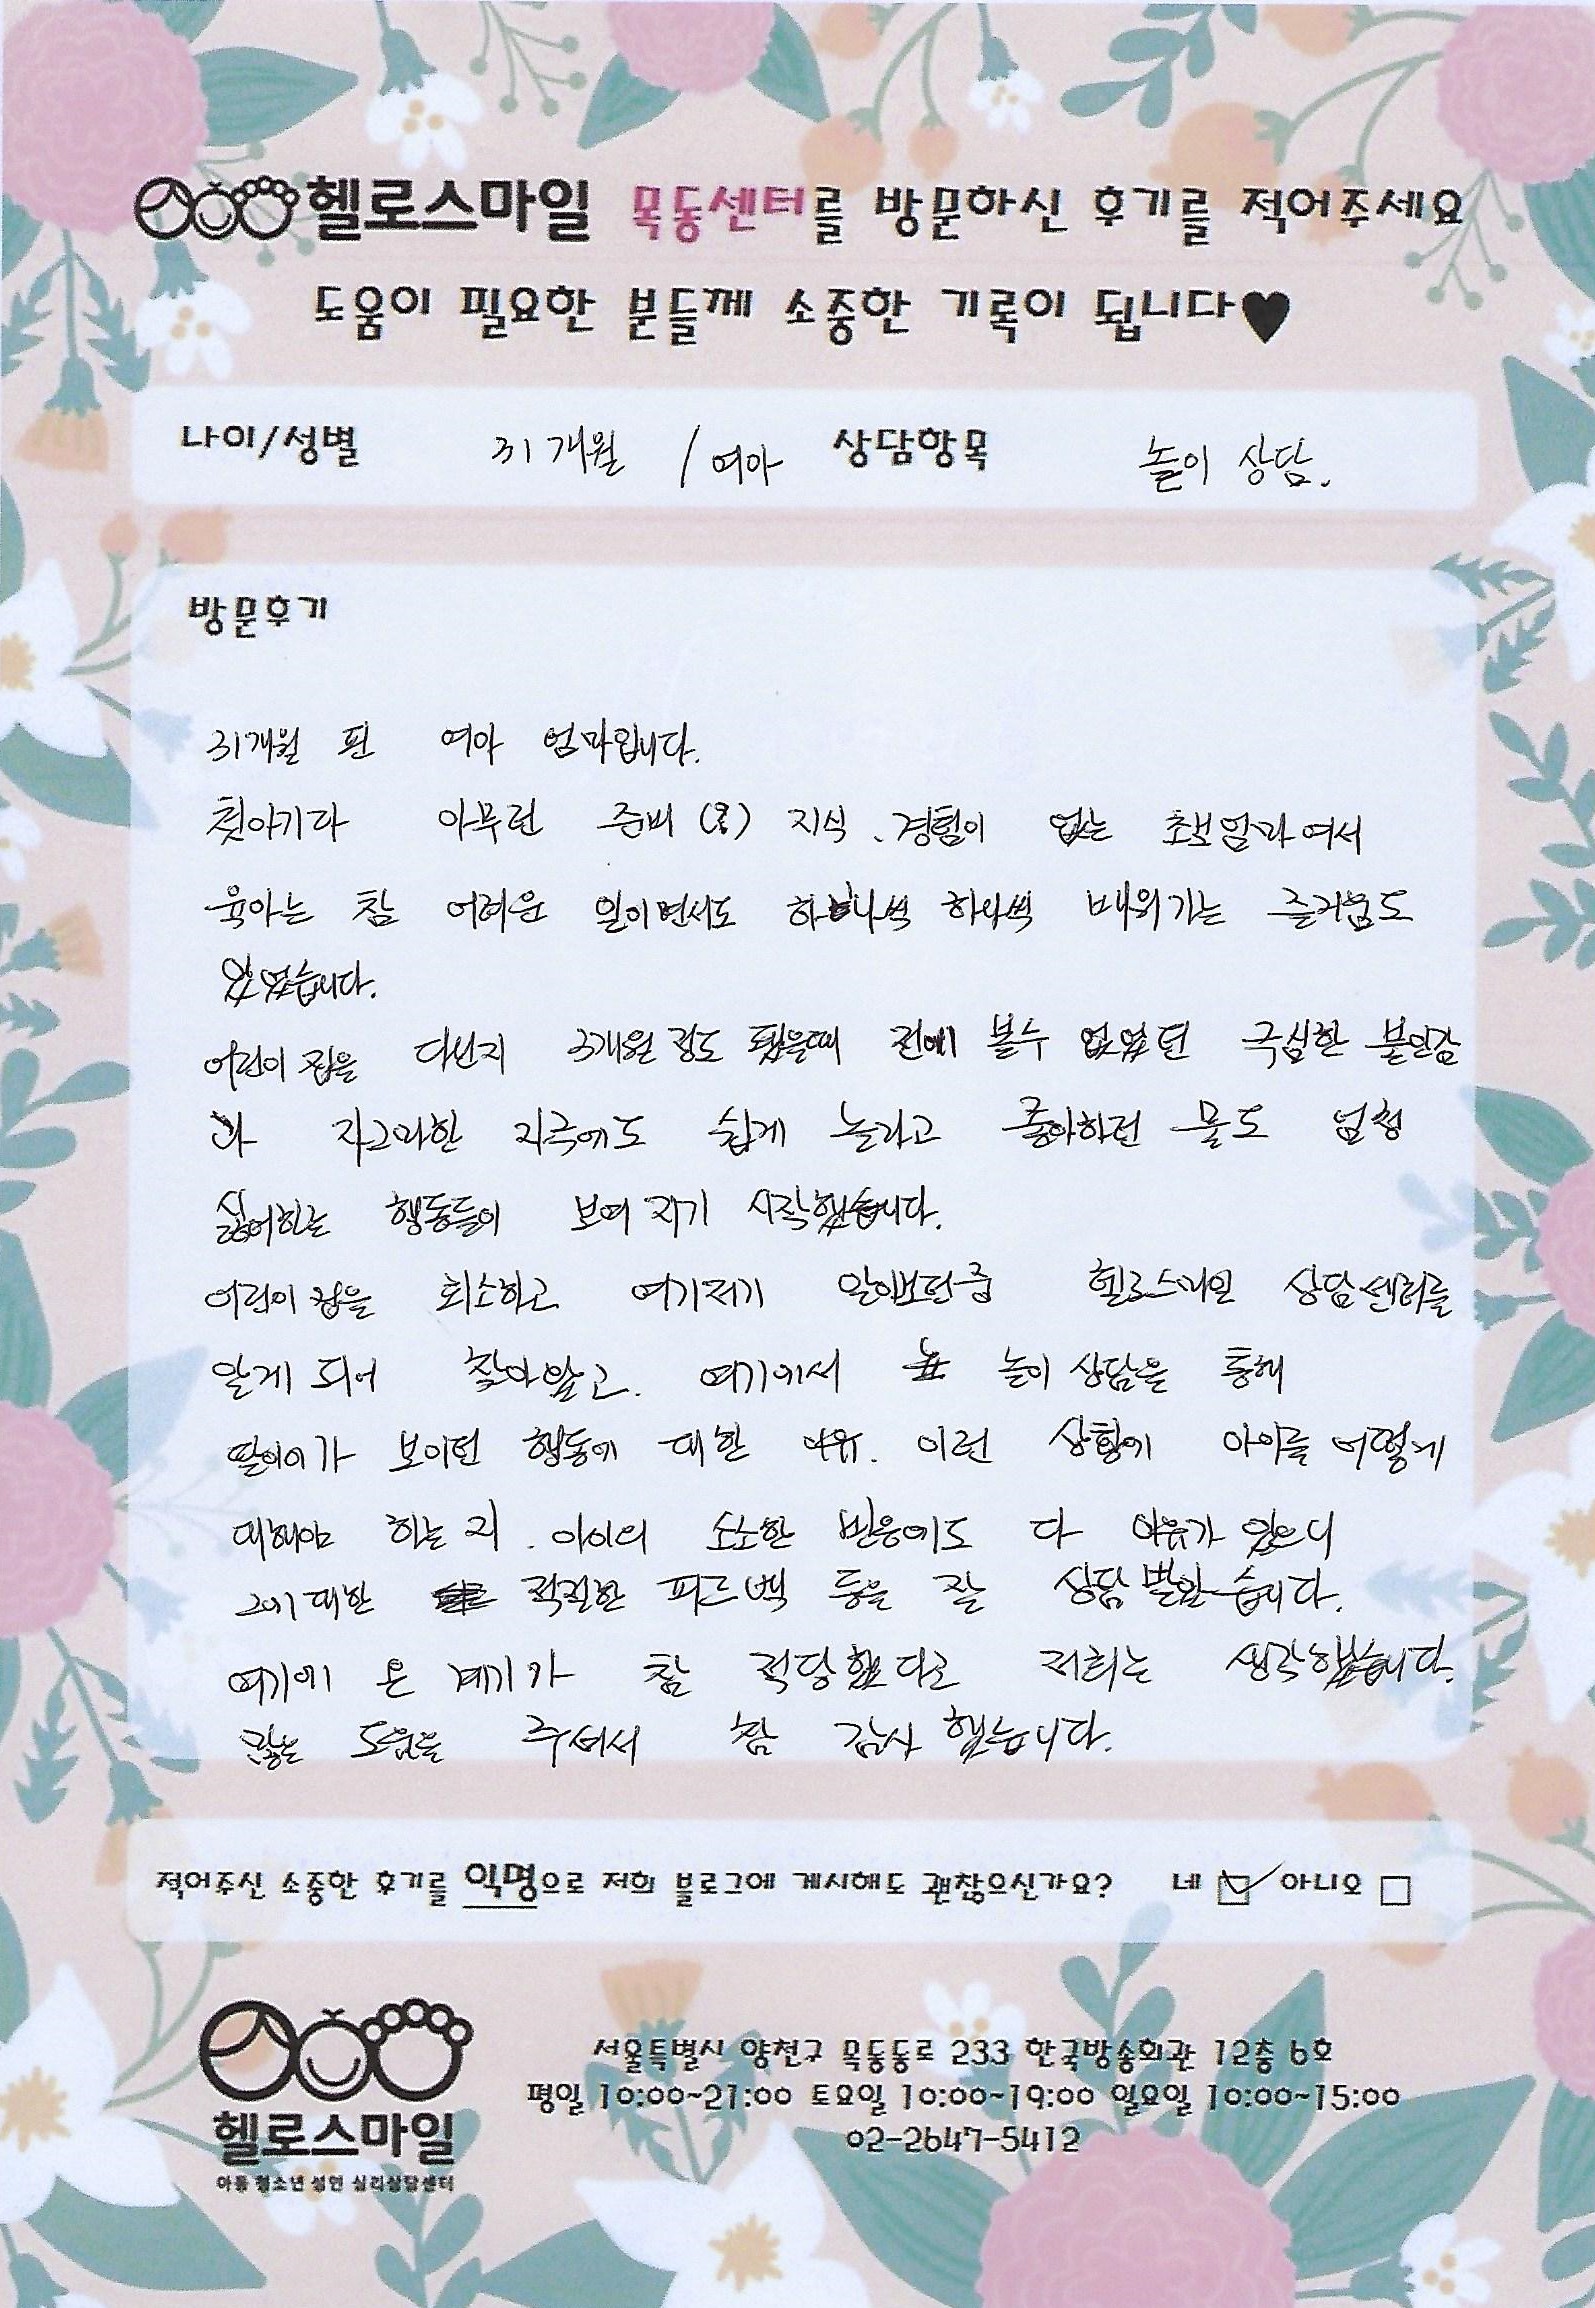 헬로스마일 목동센터를 방문하신 후기를 적어주세요
도움이 필요한 분들께 소중한 기록이 됩니다♥
나이/성별 31개월 / 여아 상담항목 놀이 상담.
방문후기
31개월 된 여아 엄마입니다.
첫아기라 아무런 준비(?) 지식. 경험이 없는 초보엄마여서
육아는 참 어려운 일이면서도 하나씩 하나씩 배워가는 즐거움도
있었습니다.
어린이 집을 다닌지 3개월 정도 됐을때 전에 볼수 없었던 극심한 불안감
과 자그마한 자극에도 쉽게 놀라고 좋아하던 물도 엄청
싫어하는 행동들이 보여 지기 시작했습니다.
어린이 집을 취소하고 여기저기 알아보던중 헬로스마일 상담센터를
알게 되어 찾아왔고. 여기에서 놀이 상담을 통해
딸아이가 보이던 행동에 대한 이유. 이런 상황에 아이를 어떻게
대해야 하는 지. 아이의 소소한 반응에도 다 이유가 있으니
그에 대한 적절한 피드백 등을 잘 상담 받았습니다.
여기에 온 계기가 참 적당했다고 저희는 생각했습니다.
많은 도움을 주셔서 참 감사 했습니다.
적어주신 소중한 후기를 익명으로 저희 블로그에 게시해도 괜찮으신가요? 네 ☑ 아니오 □
서울특별시 양천구 목동동로 233 한국방송회관 12층 6호
평일 10:00~21:00 토요일 10:00~19:00 일요일 10:00~15:00
02-2647-5412
헬로스마일
아동 청소년 성인 심리상담센터